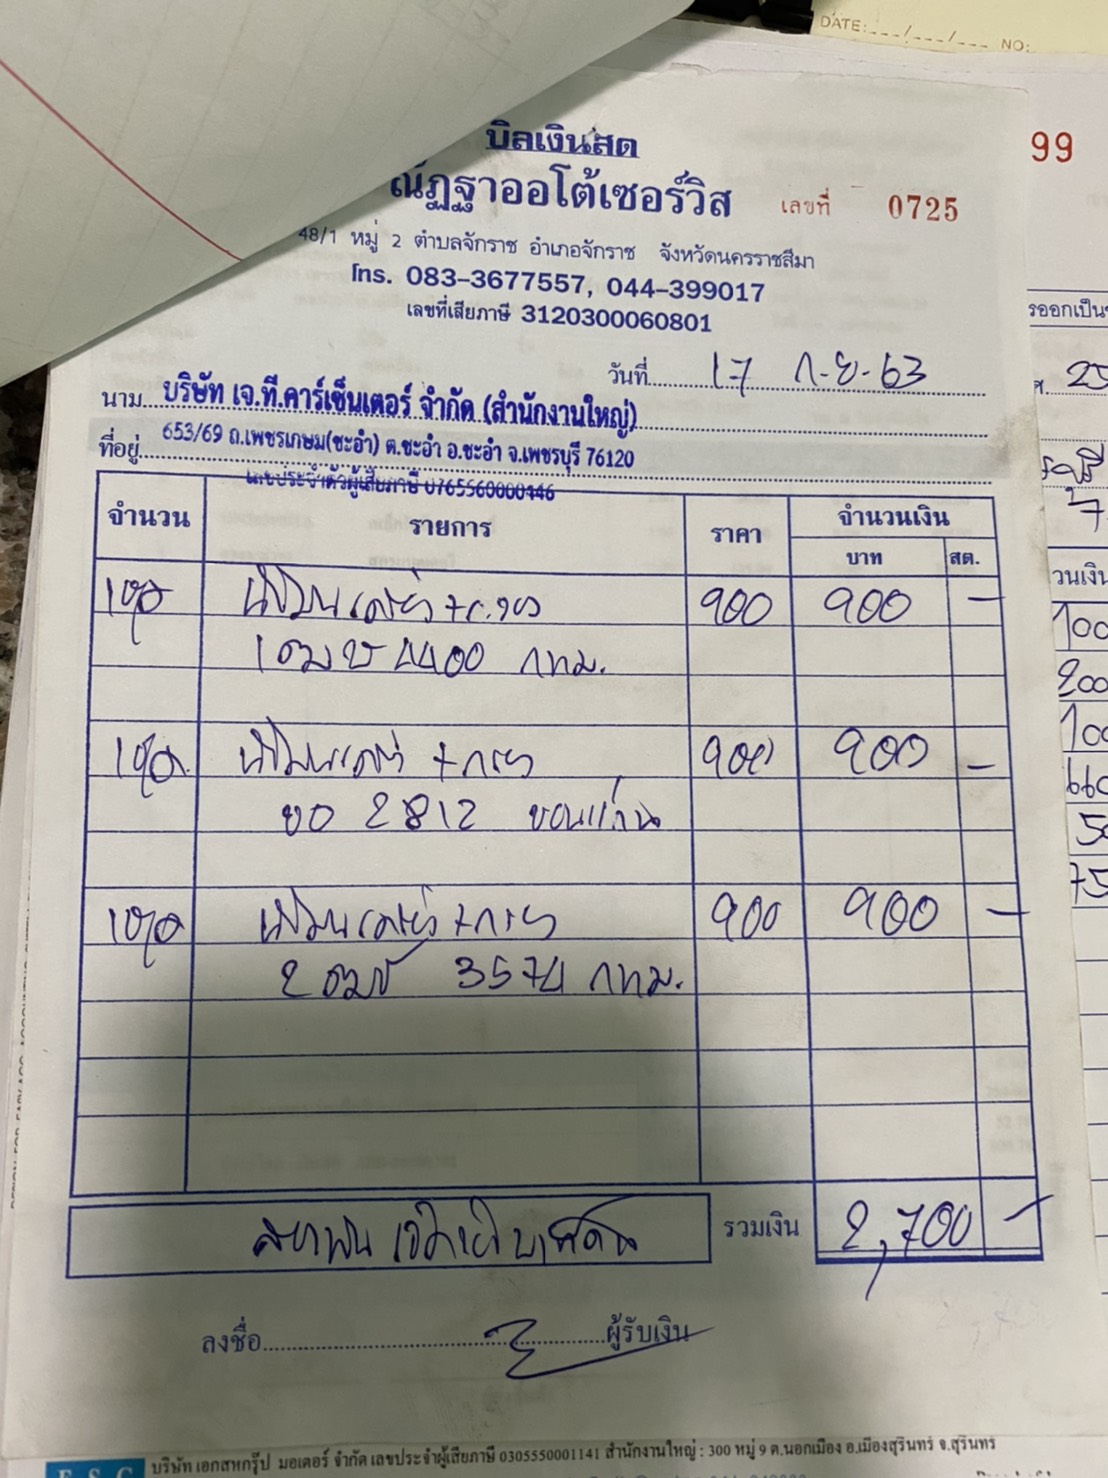 DATE:___/___/___ NO:
99
บิลเงินสด
ณัฏฐาออโต้เซอร์วิส เลขที่ 0725
48/1 หมู่ 2 ตำบลจักราช อำเภอจักราช จังหวัดนครราชสีมา
โทร. 083-3677557, 044-399017
เลขที่เสียภาษี 3120300060801
วันที่ 17 ก.ย. 63
นาม บริษัท เจ.ที.คาร์เซ็นเตอร์ จำกัด (สำนักงานใหญ่)
ที่อยู่ 653/69 ถ.เพชรเกษม(ชะอำ) ต.ชะอำ อ.ชะอำ จ.เพชรบุรี 76120
เลขประจำตัวผู้เสียภาษี 0765560000446
จำนวน รายการ ราคา จำนวนเงิน
บาท สต.
1ชุด น้ำมันเครื่อง+กรอง 900 900 -
1ฒษ 4400 กทม.
1ชุด น้ำมันเครื่อง +กรอง 900 900 -
ขอ 2812 ขอนแก่น
1ชุด น้ำมันเครื่อง +กรอง 900 900 -
2ฒช 3574 กทม.
สองพันเจ็ดร้อยบาทถ้วน รวมเงิน 2,700 -
ลงชื่อ ผู้รับเงิน
บริษัท เอกสหกรุ๊ป มอเตอร์ จำกัด เลขประจำผู้เสียภาษี 0305550001141 สำนักงานใหญ่ : 300 หมู่ 9 ต.นอกเมือง อ.เมืองสุรินทร์ จ.สุรินทร์